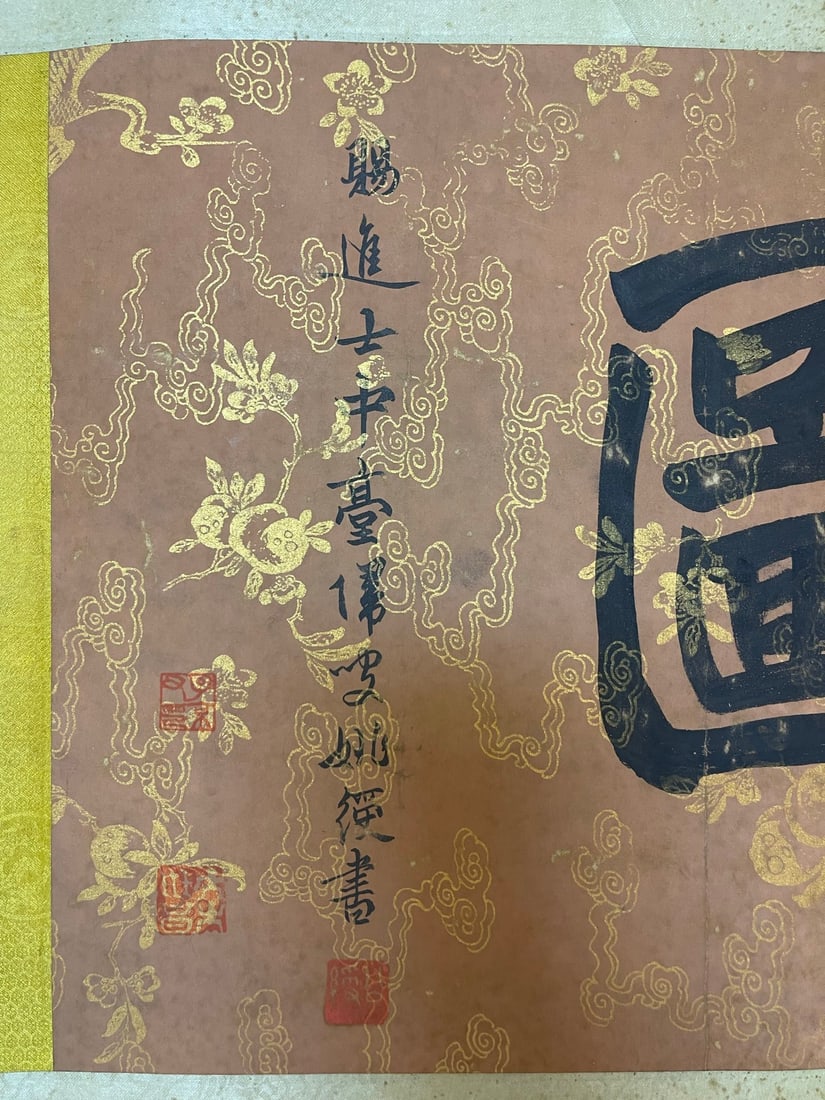 圖
賜進士中臺僊叟姚綬書